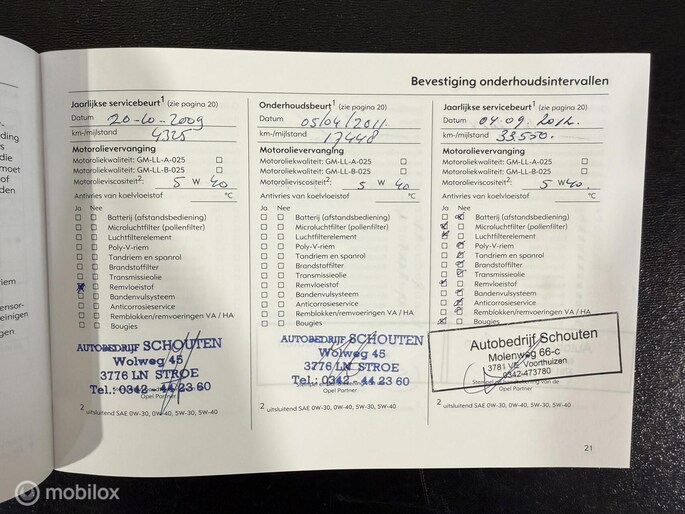 ding
s
die
moet
of
den
iem
ensor-
einigen
gen
Bevestiging onderhoudsintervallen
Jaarlijkse servicebeurt1 (zie pagina 20)
Datum 20-10-2009
km-/mijlstand 4325
Motorolievervanging
Motoroliekwaliteit: GM-LL-A-025 ☐
Motoroliekwaliteit: GM-LL-B-025 ☐
Motorolieviscositeit2: 5 W 40
Antivries van koelvloeistof °C
Ja Nee
Batterij (afstandsbediening)
Microluchtfilter (pollenfilter)
Luchtfilterelement
Poly-V-riem
Tandriem en spanrol
Brandstoffilter
Transmissieolie
Remvloeistof
Bandenvulsysteem
Anticorrosieservice
Remblokken/remvoeringen VA / HA
Bougies
AUTOBEDRIJF SCHOUTEN
Wolweg 45
3776 LN STROE
Tel.: 0342 - 44 23 60
Opel Partner
2 uitsluitend SAE 0W-30, 0W-40, 5W-30, 5W-40
Onderhoudsbeurt1 (zie pagina 20)
Datum 05/04/2011
km-/mijlstand 17448
Motorolievervanging
Motoroliekwaliteit: GM-LL-A-025 ☐
Motoroliekwaliteit: GM-LL-B-025 ☐
Motorolieviscositeit2: 5 W 40
Antivries van koelvloeistof °C
Ja Nee
Batterij (afstandsbediening)
Microluchtfilter (pollenfilter)
Luchtfilterelement
Poly-V-riem
Tandriem en spanrol
Brandstoffilter
Transmissieolie
Remvloeistof
Bandenvulsysteem
Anticorrosieservice
Remblokken/remvoeringen VA / HA
Bougies
AUTOBEDRIJF SCHOUTEN
Wolweg 45
3776 LN STROE
Tel.: 0342 - 44 23 60
Opel Partner
2 uitsluitend SAE 0W-30, 0W-40, 5W-30, 5W-40
Jaarlijkse servicebeurt1 (zie pagina 20)
Datum 04.09.2012
km-/mijlstand 33550.
Motorolievervanging
Motoroliekwaliteit: GM-LL-A-025 ☐
Motoroliekwaliteit: GM-LL-B-025 ☐
Motorolieviscositeit2: 5 W 40.
Antivries van koelvloeistof °C
Ja Nee
Batterij (afstandsbediening)
Microluchtfilter (pollenfilter)
Luchtfilterelement
Poly-V-riem
Tandriem en spanrol
Brandstoffilter
Transmissieolie
Remvloeistof
Bandenvulsysteem
Anticorrosieservice
Remblokken/remvoeringen VA / HA
Bougies
Autobedrijf Schouten
Molenweg 66-c
3781 VE Voorthuizen
0342-473780
Opel Partner
2 uitsluitend SAE 0W-30, 0W-40, 5W-30, 5W-40
21
mobilox